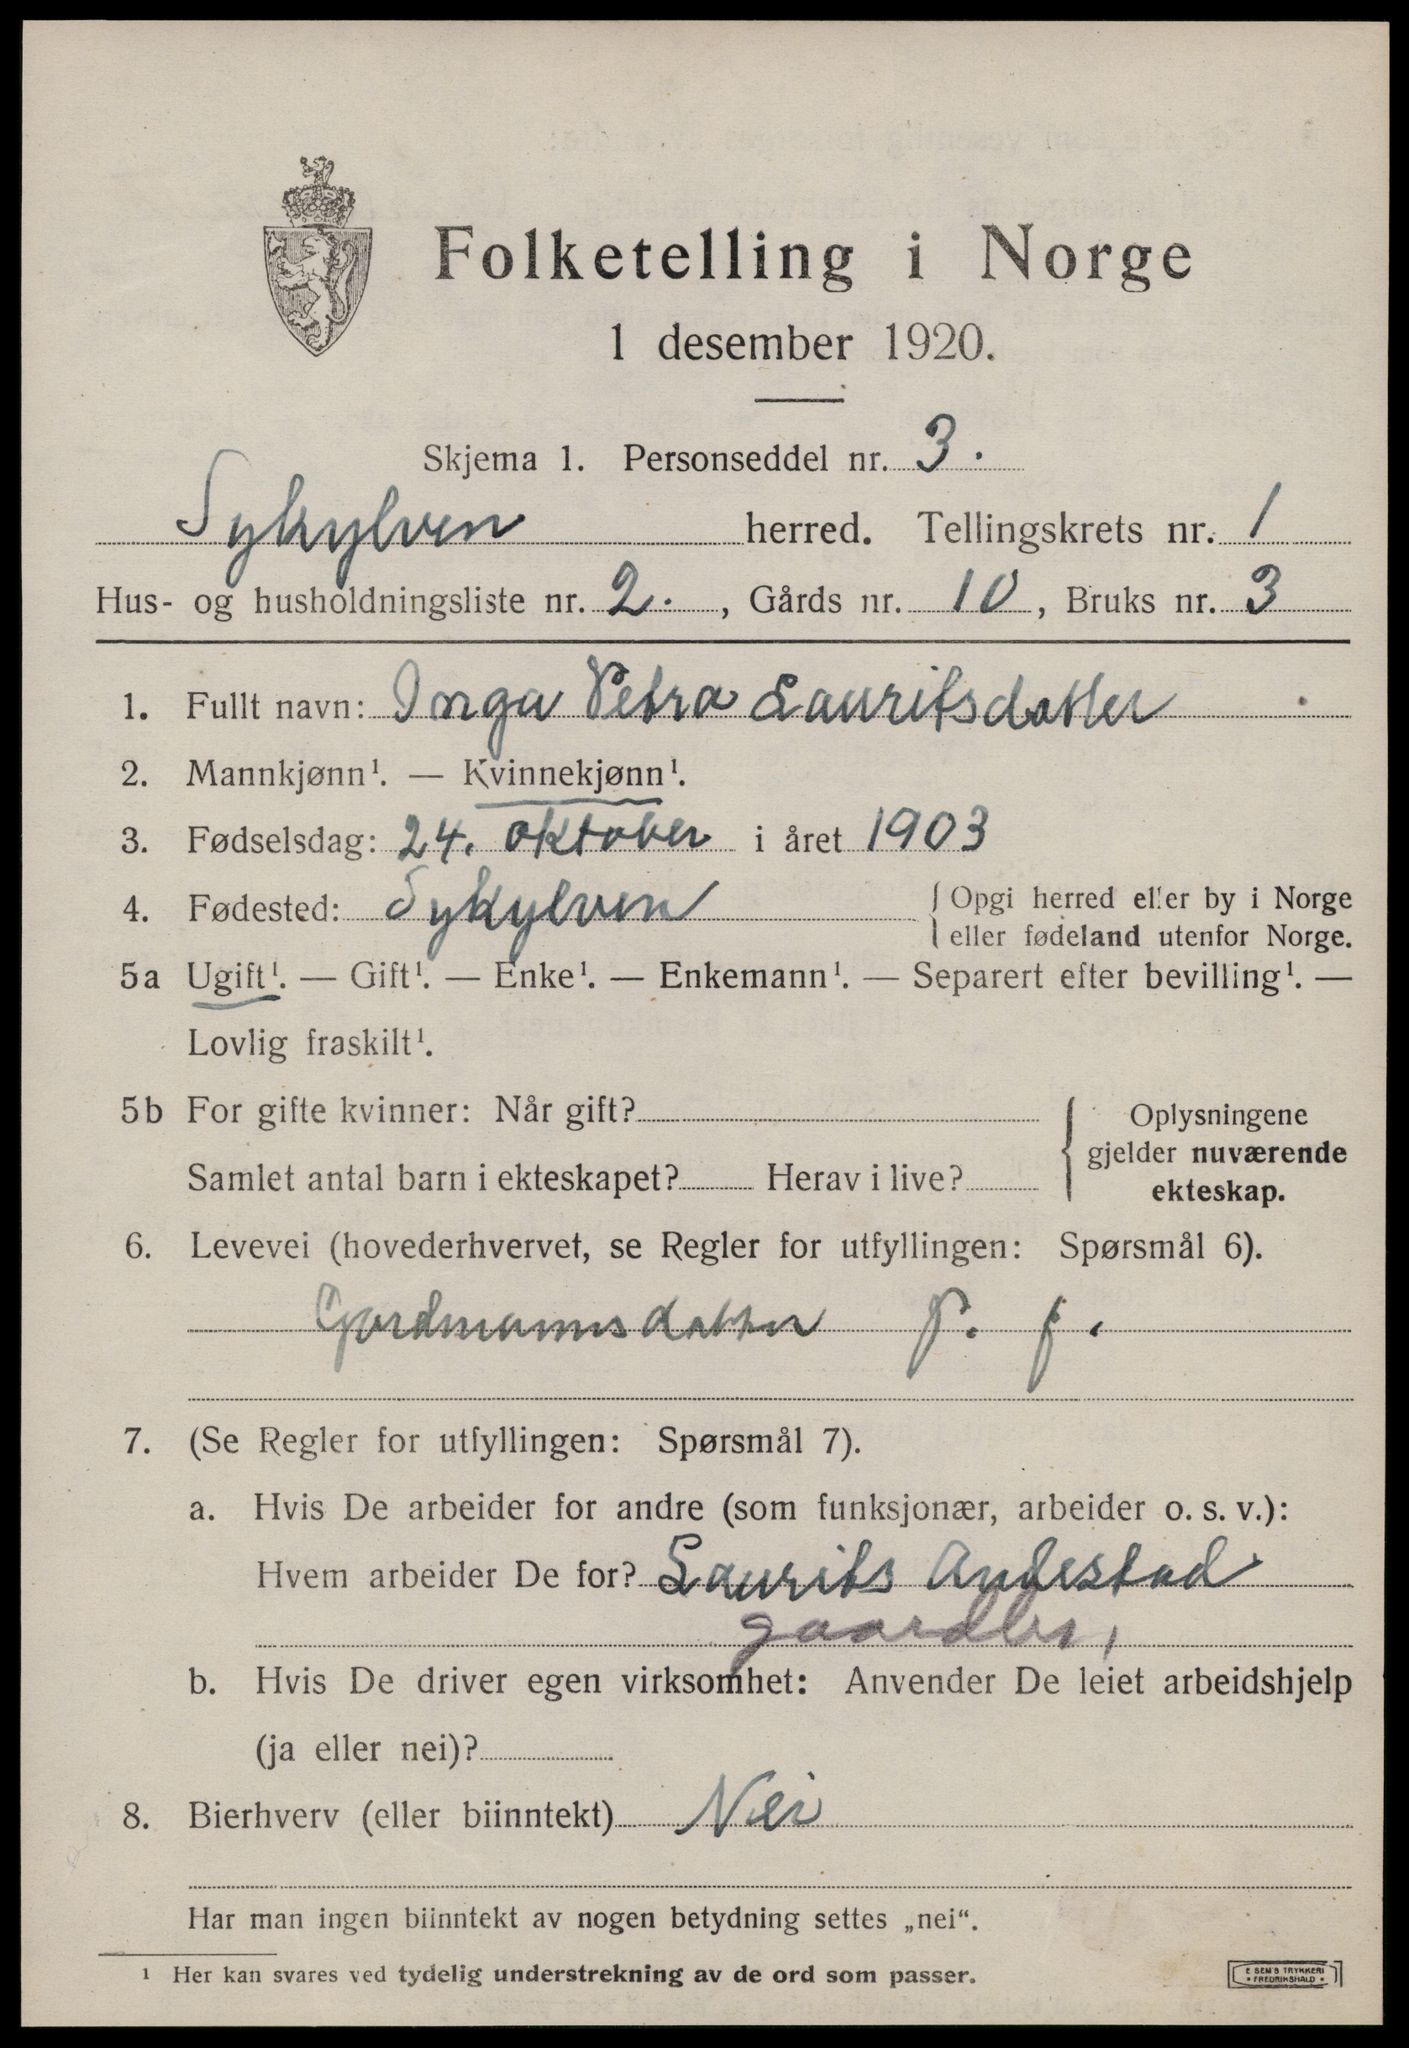 Folketelling i Norge
1 desember 1920.
Skjema 1. Personseddel nr. 3.
Sykylven herred. Tellingskrets nr. 1
Hus- og husholdningsliste nr. 2., Gårds nr. 10, Bruks nr. 3
1. Fullt navn: Inga Petra Lauritsdatter
2. Mannkjønn¹. — Kvinnekjønn¹.
3. Fødselsdag: 24. oktober i året 1903
4. Fødested: Sykylven { Opgi herred eller by i Norge
eller fødeland utenfor Norge.
5a Ugift¹. — Gift¹. — Enke¹. — Enkemann¹. — Separert efter bevilling¹. —
Lovlig fraskilt¹.
5b For gifte kvinner: Når gift? { Oplysningene
gjelder nuværende
ekteskap.
Samlet antal barn i ekteskapet? Herav i live?
6. Levevei (hovederhvervet, se Regler for utfyllingen: Spørsmål 6).
Gardmannsdatter P. f.
7. (Se Regler for utfyllingen: Spørsmål 7).
a. Hvis De arbeider for andre (som funksjonær, arbeider o. s. v.):
Hvem arbeider De for? Laurits Andestad
gaardbr,
b. Hvis De driver egen virksomhet: Anvender De leiet arbeidshjelp
(ja eller nei)?
8. Bierhverv (eller biinntekt) Nei
Har man ingen biinntekt av nogen betydning settes „nei“.
¹ Her kan svares ved tydelig understrekning av de ord som passer.
E SEM'S TRYKKERI
• FREDRIKSHALD •